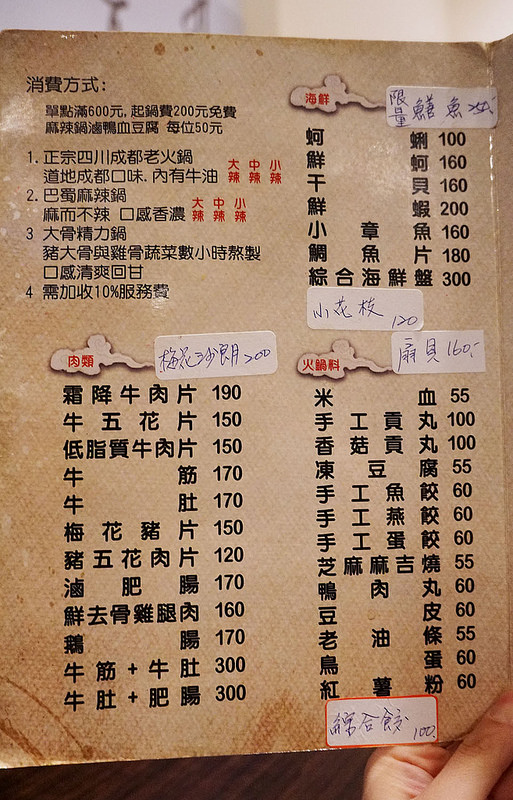 消費方式:
單點滿600元, 起鍋費200元免費
麻辣鍋滷鴨血豆腐 每位50元
1. 正宗四川成都老火鍋
道地成都口味, 內有牛油 大辣 中辣 小辣
2. 巴蜀麻辣鍋
麻而不辣 口感香濃 大辣 中辣 小辣
3 大骨精力鍋
豬大骨與雞骨蔬菜數小時熬製
口感清爽回甘
4 需加收10%服務費
肉類
梅花沙朗 200
霜降牛肉片 190
牛五花片 150
低脂質牛肉片 150
牛筋 170
牛肚 170
梅花豬片 150
豬五花肉片 120
滷肥腸 170
鮮去骨雞腿肉 160
鵝腸 170
牛筋+牛肚 300
牛肚+肥腸 300
海鮮
限量 鱔魚 250
蚵蜊 100
鮮蚵 160
干貝 160
鮮蝦 200
小章魚 160
鯛魚片 180
綜合海鮮盤 300
小花枝 120
扇貝 160.
火鍋料
米血 55
手工貢丸 100
香菇貢丸 100
凍豆腐 55
手工魚餃 60
手工燕餃 60
手工蛋餃 60
芝麻麻吉燒 55
鴨肉丸 60
豆皮 60
老油條 55
鳥蛋 60
紅薯粉 60
綜合餃 100.